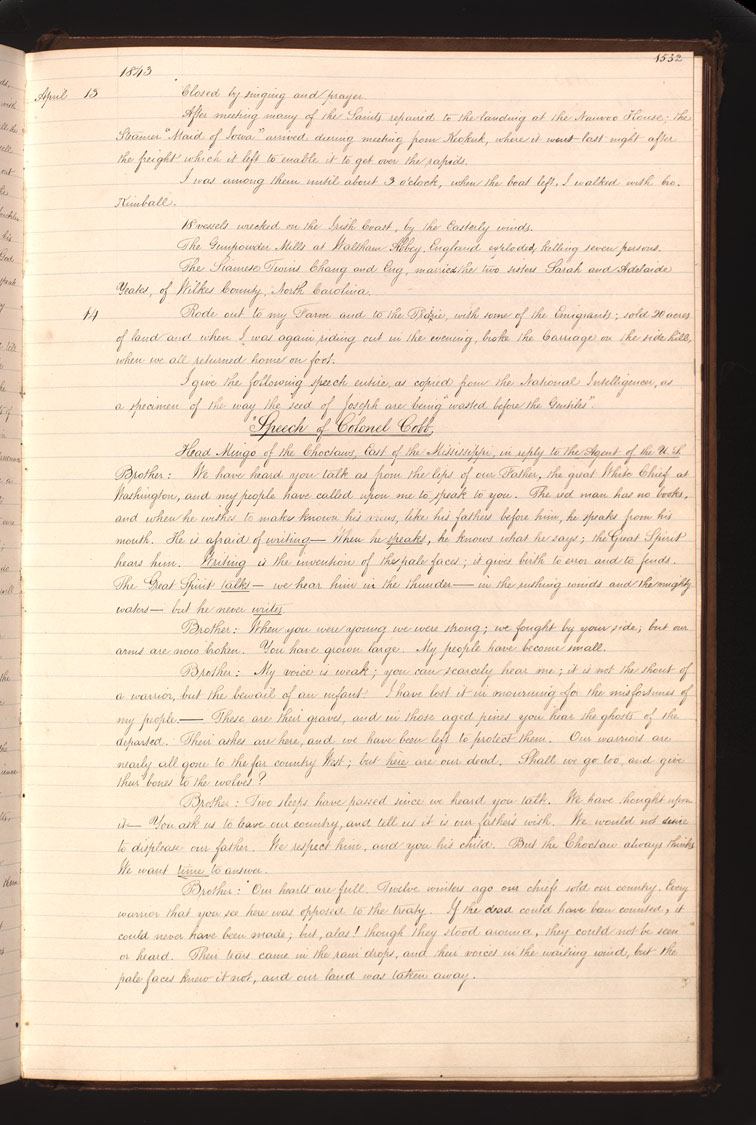 1532
1843
April 13 Closed by singing and prayer.
After meeting many of the Saints repaired to the landing at the Nauvoo House; the
Steamer "Maid of Iowa" arrived during meeting from Keokuk, where it went last night after
the freight which it left to enable it to get over the rapids.
I was among them until about 3 o'clock, when the boat left. I walked with bro.
Kimball.
18 vessels wrecked on the Irish Coast, by the Easterly winds.
The Gunpowder Mills at Waltham Abbey, England exploded, killing seven persons.
The Siamese Twins Chang and Eng, married the two sisters Sarah and Adelaide
Yeates, of Wilkes County, North Carolina.
14 Rode out to my Farm and to the Prairie, with some of the Emigrants; sold 20 acres
of land and when I was again riding out in the evening, broke the Carriage on the side hill,
when we all returned home on foot.
I give the following speech entire, as copied from the National Intelligencer, as
a specimen of the way the seed of Joseph are being "wasted before the Gentiles".
"Speech of Colonel Cobb,
Head Mingo of the Choctaws, East of the Mississippi, in reply to the Agent of the U. S.
Brother: We have heard you talk as from the lips of our Father, the great White Chief at
Washington, and my people have called upon me to speak to you. The red man has no books,
and when he wishes to make known his views, like his fathers before him, he speaks from his
mouth. He is afraid of writing— When he speaks, he knows what he says; the Great Spirit
hears him. Writing is the invention of the pale faces; it gives birth to error and to feuds.
The Great Spirit talks— we hear him in the thunder— in the rushing winds and the mighty
waters— but he never writes.
Brother: When you were young we were strong; we fought by your side; but our
arms are now broken. You have grown large. My people have become small.
Brother: My voice is weak; you can scarcely hear me; it is not the shout of
a warrior, but the bewail of an infant. I have lost it in mourning for the misfortunes of
my people.— These are their graves, and in those aged pines you hear the ghosts of the
departed. Their ashes are here, and we have been left to protect them. Our warriors are
nearly all gone to the far country West; but here are our dead. Shall we go too, and give
their bones to the wolves?
Brother: Two sleeps have passed since we heard you talk. We have thought upon
it— You ask us to leave our country, and tell us it is our father's wish. We would not desire
to displease our father. We respect him, and you his child. But the Choctaw always thinks.
We want time to answer.
Brother: Our hearts are full. Twelve winters ago our chiefs sold our country. Every
warrior that you see here was opposed to the treaty. If the dead could have been counted, it
could never have been made; but, alas! though they stood around, they could not be seen
or heard. Their tears came in the rain drops, and their voices in the wailing wind, but the
pale faces knew it not, and our land was taken away.